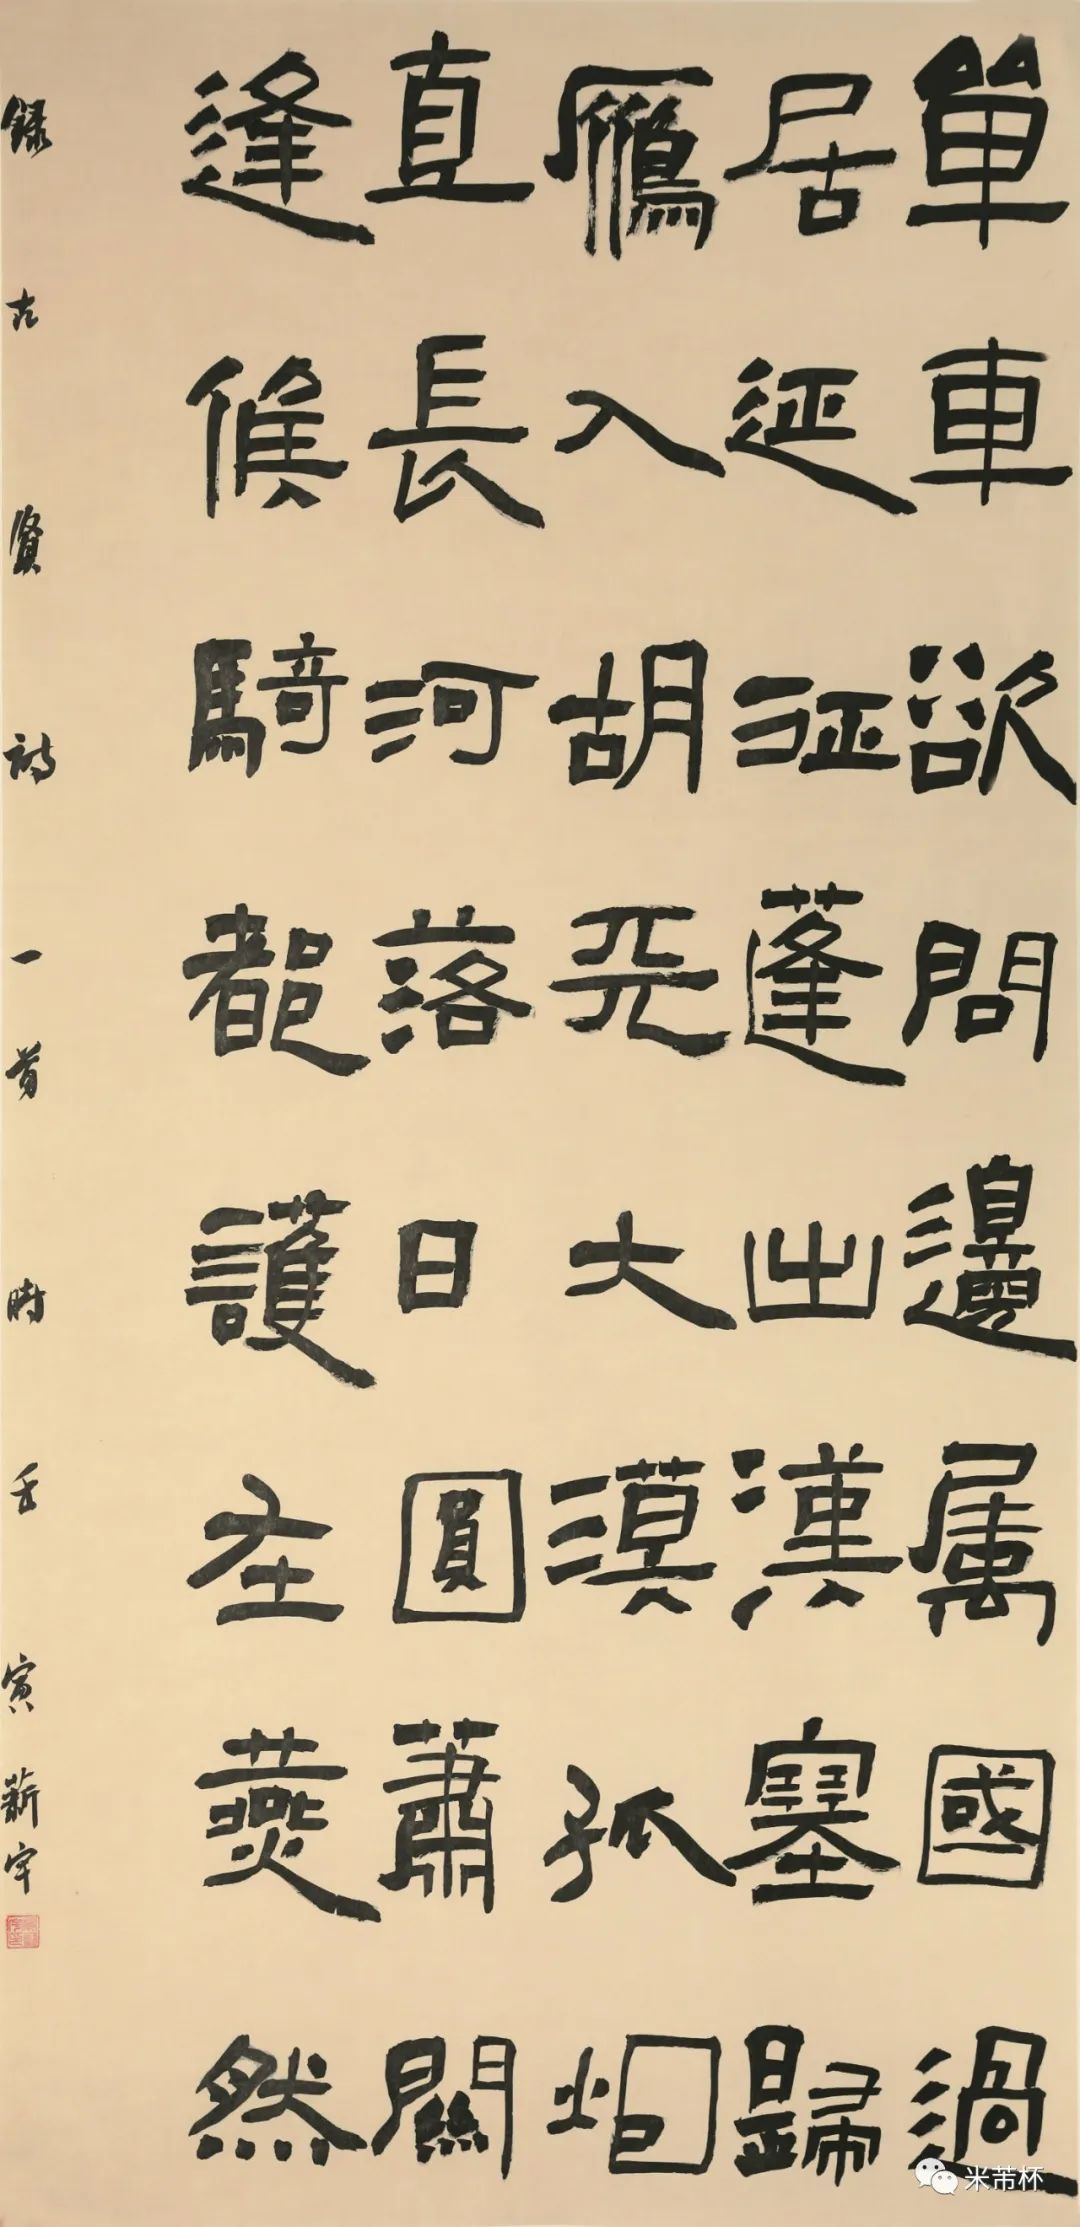 單車欲問邊屬國過
居延征蓬出漢塞歸
鴈入胡天大漠孤烟
直長河落日圓蕭關
逢候騎都護在燕然
録古賢詩一首時壬寅薪宇
米芾杯